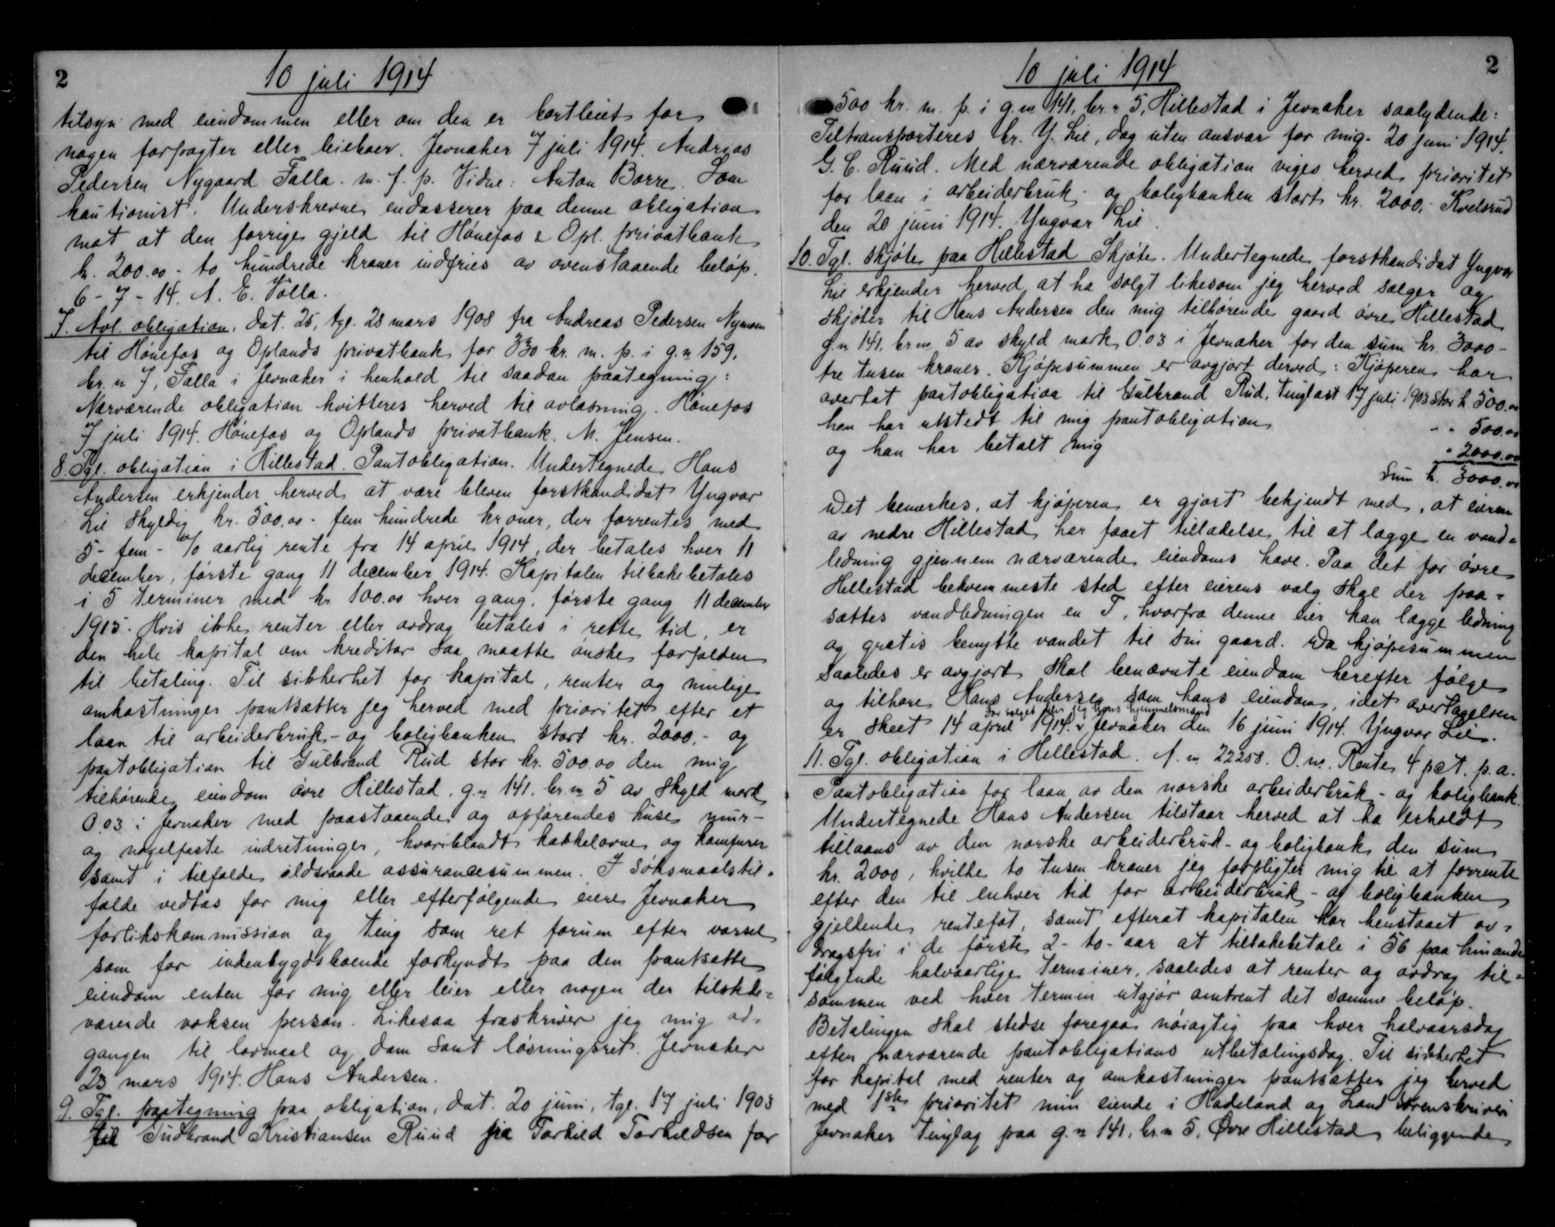 2
10 juli 1914
tilsyn med eiendommen eller om den er bortleiet for
nogen forpagter eller leieboer. Jevnaker 7 juli 1914. Andreas
Pedersen Nygaard Falla. m. f. p. Vidne: Anton Borre. Som
kautionist. Underskrevne endosserer paa denne obligation
mot at den forrige gjeld til Hönefos & Opl. privatbank
k. 200.00 - to hundrede kroner indfries av ovenstaaende belöp.
6-7-14. A. E. Volla.
7. Avl. obligation, dat. 25, tgl. 28 mars 1908 fra Andreas Pedersen
til Hönefos og Oplands privatbank for 330 kr. m. p. i g.n 159,
br.n 7, Falla i Jevnaker i henhold til saadan paategning:
Nærværende obligation kvitteres herved til avlæsning. Hönefos
7 juli 1914. Hönefos og Oplands privatbank. M. Jensen.
8. Tgl. obligation i Hillestad. Pantobligation. Undertegnede Hans
Andersen erkjender herved at være bleven forstkandidat Yngvar
Lie skyldig kr. 500.00 - fem hundrede kroner, der forrentes med
5- fem - % aarlig rente fra 14 april 1914, der betales hver 11
december, förste gang 11 december 1914. Kapitalen tilbakebetales
i 5 terminer med kr 100.00 hver gang, förste gang 11 december
1915. Hvis ikke renter eller avdrag betales i rette tid, er
den hele kapital om kreditor saa maatte önske forfalden
til betaling. Til sikkerhet for kapital, renter og mulige
omkostninger pantsætter jeg herved med prioritet efter et
laan til arbeiderbruk- og boligbanken stort kr. 2000.- og
pantobligation til Gulbrand Rud stor kr. 500.00 den mig
tilhörende eiendom övre Hillestad, g.n 141, br.n 5 av skyld mark
0.03 i Jevnaker med paastaaende og opförendes huse mur-
og nagelfaste indretninger, hvoriblandt kakkelovne og komfurer
samt i tilfælde ildsvaade assurancesummen. I söksmaalstil-
fælde vedtas for mig eller efterfölgende eiere Jevnaker
forlikskommission og ting som ret forum efter varsel
som for indenbygdsboende forkyndt paa den pantsatte
eiendom enten for mig eller leier eller nogen der tilstede-
værende voksen person. Likesaa fraskriver jeg mig ad-
gangen til lovmaal og dom samt lösningsret. Jevnaker
23 mars 1914. Hans Andersen.
9. Tgl. paategning paa obligation, dat. 20 juni, tgl. 17 juli 1903
til Gudbrand Kristiansen Ruud fra Torkild Torkildsen for
10 juli 1914
2
500 kr. m. p. i g.n 141, br.n 5, Hillestad i Jevnaker saalydende:
Tiltransporteres hr. Y. Lie, dog uten ansvar for mig. 20 juni 1914.
G. C. Ruud. Med nærværende obligation viges herved prioritet
for laan i arbeiderbruk- og boligbanken stort kr. 2000.- Kvelsrud
den 20 juni 1914. Yngvar Lie.
10. Tgl. skjöte paa Hillestad Skjöte. Undertegnede forstkandidat Yngvar
Lie erkjender herved at ha solgt likesom jeg herved sælger og
skjöter til Hans Andersen den mig tilhörende gaard övre Hillestad
g.n 141, br.n 5 av skyld mark 0.03 i Jevnaker for den sum kr. 3000 -
tre tusen kroner. Kjöpsummen er avgjort derved: Kjöperen har
overtat pantobligation til Gulbrand Rud, tinglæst 17 juli 1903 stor k 500.00
han har utstedt til mig pantobligation - - 500.00
og han har betalt mig - 2000.00
Sum k. 3000.00
Det bemerkes, at kjöperen er gjort bekjendt med, at eieren
av nedre Hillestad har faaet tilladelse til at lægge en vand-
ledning gjennem nærværende eiendoms have. Paa det for övre
Hillestad bekvemmeste sted efter eierens valg skal der paa-
sættes vandledningen en T, hvorfra denne eier kan lægge ledning
og gratis benytte vandet til sin gaard. Da kjöpesummen
saaledes er avgjort skal benævnte eiendom herefter fölge
og tilhöre Hans Andersen som hans eiendom, idet overtagelsen
er skeet 14 april 1914. Jevnaker den 16 juni 1914. Yngvar Lie.
11. Tgl. obligation i Hillestad. A. n. 22258. O. nr. Rente 4 pct. p.a.
Pantobligation for laan av den norske arbeiderbruk- og boligbank.
Undertegnede Hans Andersen tilstaar herved at ha erholdt
tillaans av den norske arbeiderbruk- og boligbank den sum
kr. 2000, hvilke to tusen kroner jeg forpligter mig til at forrente
efter den til enhver tid for arbeiderbruk- og boligbanken
gjeldende rentefot, samt efterat kapitalen har henstaaet av-
dragsfri i de förste 2- to- aar at tilbakebetale i 56 paa hinanden
fölgende halvaarlige terminer, saaledes at renter og avdrag til-
sammen ved hver termin utgjör omtrent det samme belöp.
Betalingen skal stedse foregaa nöiagtig paa hver halvaarsdag
efter nærværende pantobligations utbetalingsdag. Til sikkerhet
for kapital med renter og omkostninger pantsætter jeg herved
med 1ste prioritet min eiende i Hadeland og Land sorenskriveri
Jevnaker tinglag paa g.n 141, br.n 5, Övre Hillestad beliggende